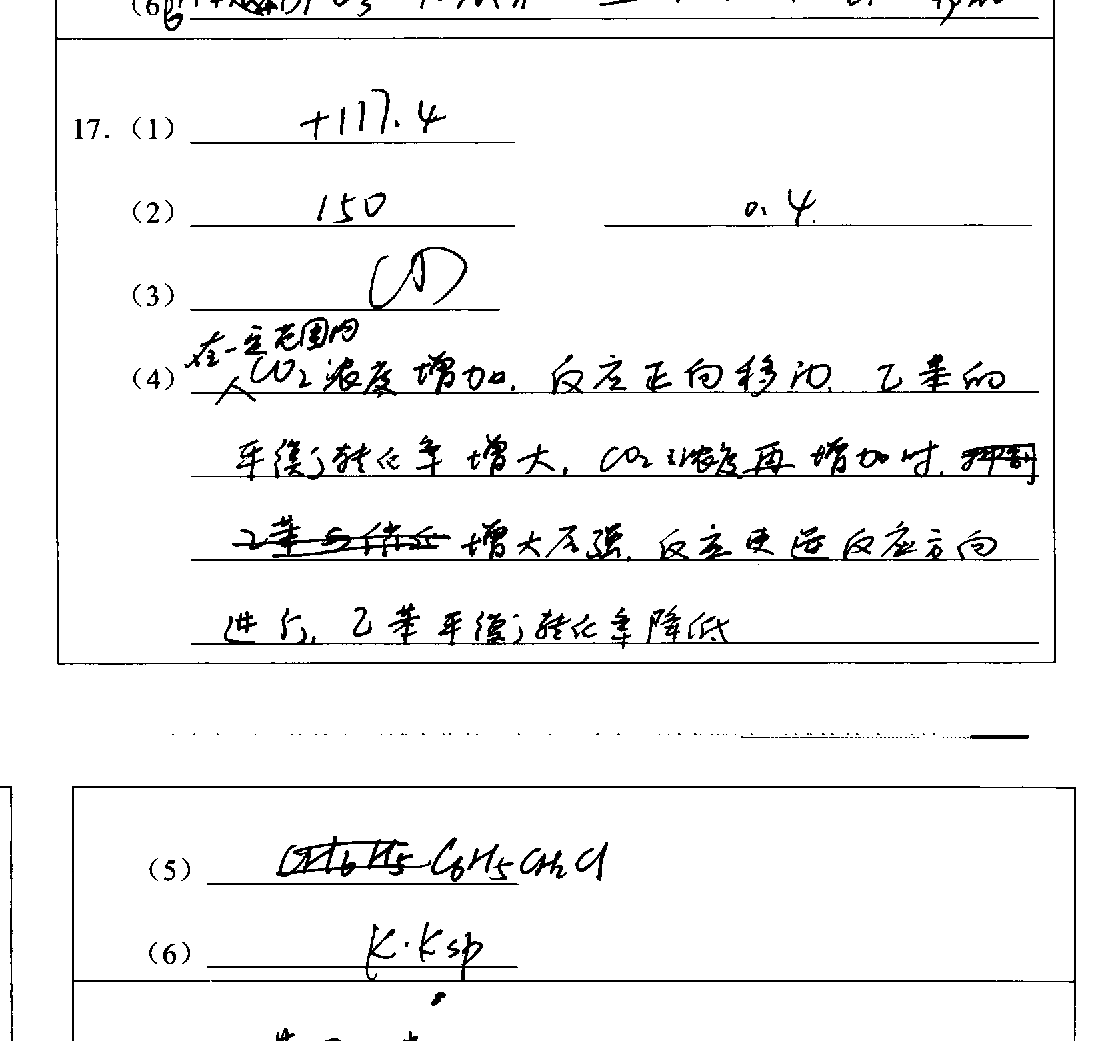 (6)
17. (1) +117.4
(2) 150 0.4
(3) ①
在一定范围内
(4) CO₂浓度增加, 反应正向移动, 乙苯的
平衡转化率增大, CO₂浓度再增加时,
增大压强, 反应更逆反应方向
进行, 乙苯平衡转化率降低
(5) C₆H₅CH₂Cl
(6) K·Ksp